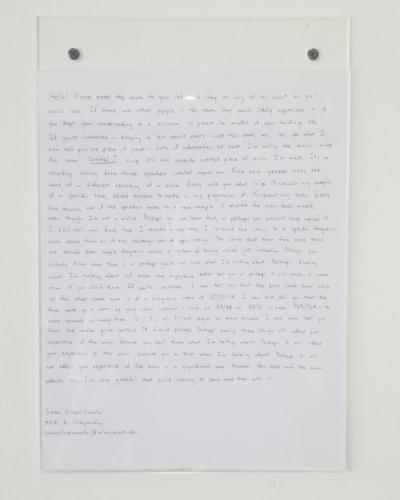 Hello! Please enter the room to your left and stay as long or as short as you
would like. If there are other people in the room, they would likely appreciate it if
you kept your conversation to a minimum, so please be mindful of your talking, etc.
If you're interested in knowing a bit about what's inside this room, well, let's see what I
can tell you, one piece of paper's worth of information, at least. I'm calling the music inside
this room Untitled 7, since it's the seventh untitled piece of music I've made. It's a
recording coming from three speakers located above you. From each speaker comes the
sound of a different recording of a viola. Every note you hear is a 15-second-long sample
of a specific tone, edited together to make a long progression of 15-second-long tones. Every
five seconds, one of the speakers moves to a new sample. I recorded the viola tones myself,
even though I'm not a violist. Perhaps you can hear that, or perhaps you wouldn't have noticed if
I didn't tell you. Each time I recorded a new tone, I re-tuned the string to a specific frequency,
which means that all of the recordings are of open strings. The chords that form from these tones
are derived from simple frequency ratios, a system of tuning called just intonation. Perhaps you
already know what that is or perhaps you're not sure what I'm talking about. Perhaps knowing
what I'm talking about will make the experience better for you or perhaps it will make it worse
than if you didn't know. If you're interested, I can tell you that the basic chord from which
all the other chords move is of a frequency ratio of I can also tell you that the
tones move up or down by very small intervals - such as or or even - to
move towards or away from or trident major or minor triads. I can also tell you
that the entire piece contains 74 distinct pitches. Perhaps knowing these things will affect your
experience of the music because you don't know what I'm talking about. Perhaps it will affect
your experience of the music because you do know what I'm talking about. Perhaps it will
not affect your experience of the music in a significant way. However this text and the music
affects you, I'm very grateful that you're choosing to spend some time with it.
Composition